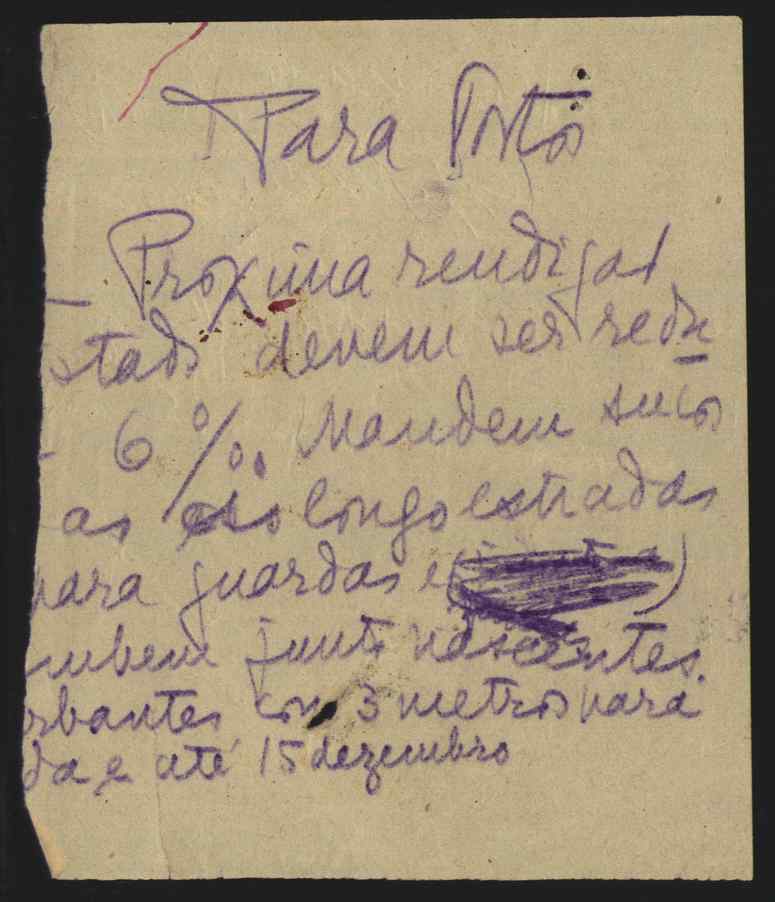 Para Postos
Proxima rendições
stado devem ser redu
6 %. Mandem
as ao longo estradas
para guardas e
mbem junto nascentes.
rbantes com 3 metros para
da e até 15 dezembro